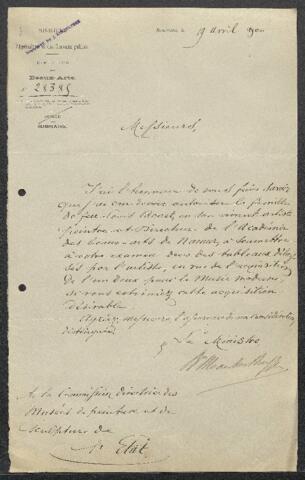 MINISTÈRE
Bruxelles, le 9 avril 1900
Beaux-Arts
N° 28385
Messieurs,
J'ai l'honneur de vous faire savoir
que j'ai cru devoir autoriser la famille
de feu Louis en son vivant artiste
peintre et Directeur de l'Académie
des beaux-arts de Namur, à soumettre
à votre examen deux des tableaux
par l'artiste, en vue de l'acquisition
de l'un d'eux pour le Musée moderne,
si vous estimiez cette acquisition
désirable.
Agréez, Messieurs, l'assurance de ma considération
distinguée.
Le Ministre
A la Commission directrice des
Musées de peinture et de
sculpture de
l'État